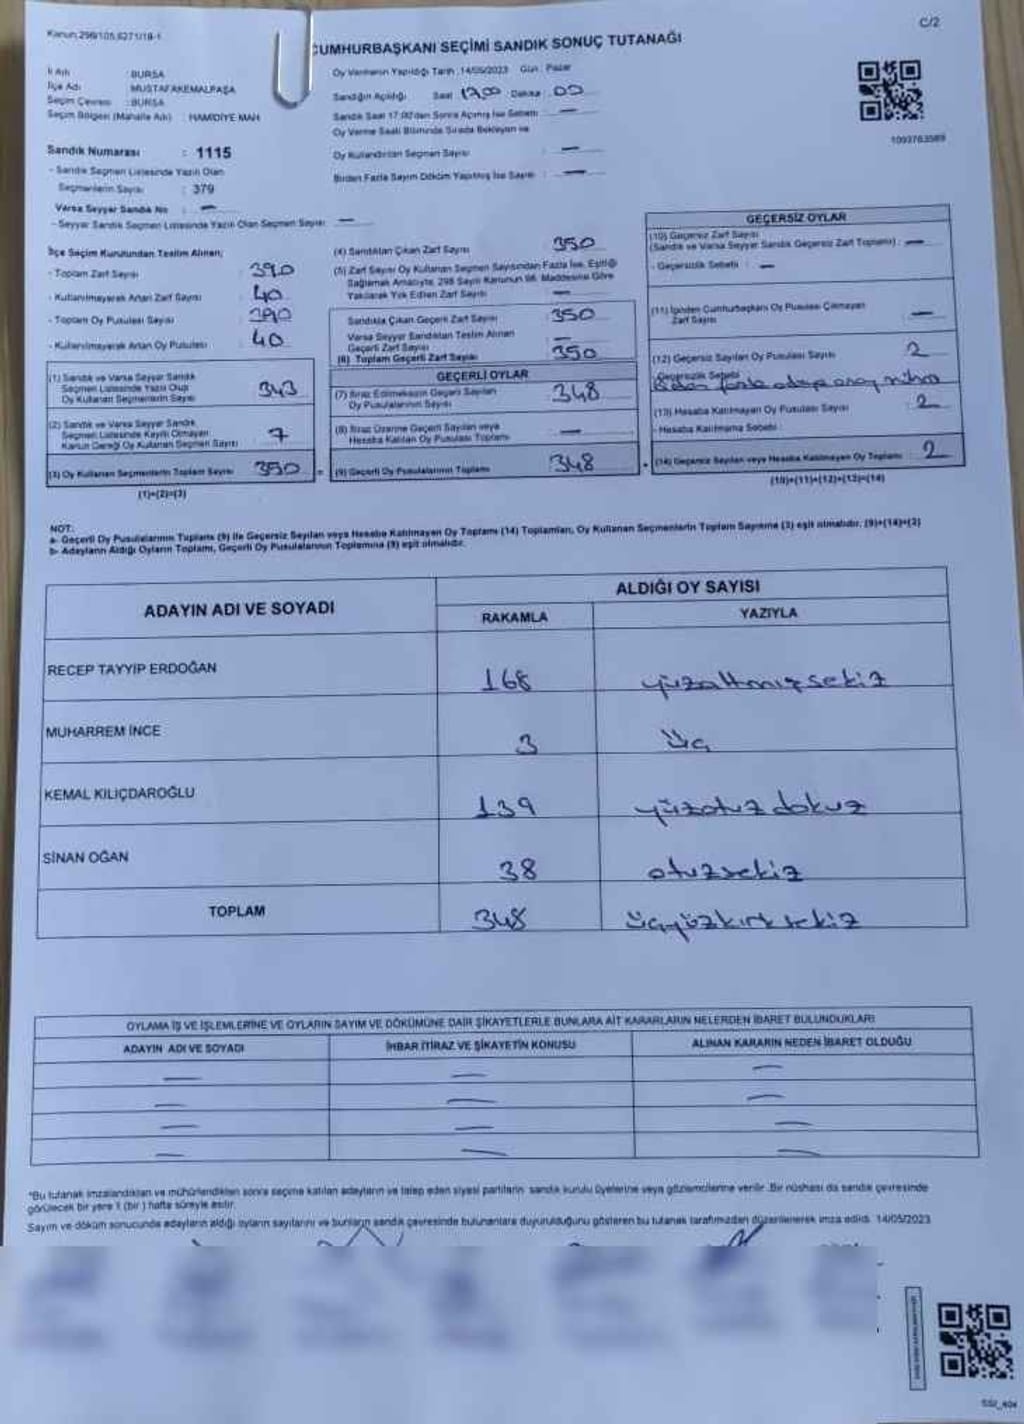 Kanun:298/105,6271/18-1
C/2
CUMHURBAŞKANI SEÇİMİ SANDIK SONUÇ TUTANAĞI
İl Adı : BURSA
İlçe Adı : MUSTAFAKEMALPAŞA
Seçim Çevresi : BURSA
Seçim Bölgesi (Mahalle Adı) : HAMİDİYE MAH
Oy Vermenin Yapıldığı Tarih : 14/05/2023 Gün : Pazar
Sandığın Açıldığı Saat 17,00 Dakika : 00
Sandık Saat 17:00'den Sonra Açılmış İse Sebebi : —
Oy Verme Saati Bitiminde Sırada Bekleyen ve
Oy Kullandırılan Seçmen Sayısı : —
Birden Fazla Sayım Döküm Yapılmış İse Sayısı : —
1093763589
Sandık Numarası : 1115
- Sandık Seçmen Listesinde Yazılı Olan
Seçmenlerin Sayısı : 379
Varsa Seyyar Sandık No : —
- Seyyar Sandık Seçmen Listesinde Yazılı Olan Seçmen Sayısı : —
İlçe Seçim Kurulundan Teslim Alınan;
- Toplam Zarf Sayısı : 390
- Kullanılmayarak Artan Zarf Sayısı : 40
- Toplam Oy Pusulası Sayısı : 390
- Kullanılmayarak Artan Oy Pusulası : 40
(1) Sandık ve Varsa Seyyar Sandık
Seçmen Listesinde Yazılı Olup
Oy Kullanan Seçmenlerin Sayısı 343
(2) Sandık ve Varsa Seyyar Sandık
Seçmen Listesinde Kayıtlı Olmayan
Kanun Gereği Oy Kullanan Seçmen Sayısı 7
(3) Oy Kullanan Seçmenlerin Toplam Sayısı 350
(1)+(2)=(3)
(4) Sandıktan Çıkan Zarf Sayısı : 350
(5) Zarf Sayısı Oy Kullanan Seçmen Sayısından Fazla İse, Eşitliği
Sağlamak Amacıyla, 298 Sayılı Kanunun 98. Maddesine Göre
Yakılarak Yok Edilen Zarf Sayısı : —
Sandıkta Çıkan Geçerli Zarf Sayısı : 350
Varsa Seyyar Sandıktan Teslim Alınan
Geçerli Zarf Sayısı : —
(6) Toplam Geçerli Zarf Sayısı : 350
GEÇERLİ OYLAR
(7) İtiraz Edilmeksizin Geçerli Sayılan
Oy Pusulalarının Sayısı : 348
(8) İtiraz Üzerine Geçerli Sayılan veya
Hesaba Katılan Oy Pusulası Toplamı : —
(9) Geçerli Oy Pusulalarının Toplamı : 348
GEÇERSİZ OYLAR
(10) Geçersiz Zarf Sayısı
(Sandık ve Varsa Seyyar Sandık Geçersiz Zarf Toplamı) : —
- Geçersizlik Sebebi : —
(11) İçinden Cumhurbaşkanı Oy Pusulası Çıkmayan
Zarf Sayısı : —
(12) Geçersiz Sayılan Oy Pusulası Sayısı : 2
- Geçersizlik Sebebi
fazla
(13) Hesaba Katılmayan Oy Pusulası Sayısı : 2
- Hesaba Katılmama Sebebi :
(14) Geçersiz Sayılan veya Hesaba Katılmayan Oy Toplamı : 2
(10)+(11)+(12)+(13)=(14)
NOT:
a- Geçerli Oy Pusulalarının Toplamı (9) ile Geçersiz Sayılan veya Hesaba Katılmayan Oy Toplamı (14) Toplamları, Oy Kullanan Seçmenlerin Toplam Sayısına (3) eşit olmalıdır. (9)+(14)=(3)
b- Adayların Aldığı Oyların Toplamı, Geçerli Oy Pusulalarının Toplamına (9) eşit olmalıdır.
ADAYIN ADI VE SOYADI
ALDIĞI OY SAYISI
RAKAMLA YAZIYLA
RECEP TAYYİP ERDOĞAN 168 yüzaltmışsekiz
MUHARREM İNCE 3 üç
KEMAL KILIÇDAROĞLU 139 yüzotuzdokuz
SİNAN OĞAN 38 otuzsekiz
TOPLAM 348 üçyüzkırksekiz
OYLAMA İŞ VE İŞLEMLERİNE VE OYLARIN SAYIM VE DÖKÜMÜNE DAİR ŞİKAYETLERLE BUNLARA AİT KARARLARIN NELERDEN İBARET BULUNDUKLARI
ADAYIN ADI VE SOYADI İHBAR İTİRAZ VE ŞİKAYETİN KONUSU ALINAN KARARIN NEDEN İBARET OLDUĞU
— — —
— — —
— — —
— — —
*Bu tutanak imzalandıktan ve mühürlendikten sonra seçime katılan adayların ve talep eden siyasi partilerin sandık kurulu üyelerine veya gözlemcilerine verilir. Bir nüshası da sandık çevresinde
görülecek bir yere 1 (bir) hafta süreyle asılır.
Sayım ve döküm sonucunda adayların aldığı oyların sayılarını ve bunların sandık çevresinde bulunanlara duyurulduğunu gösteren bu tutanak tarafımızdan düzenlenerek imza edildi. 14/05/2023